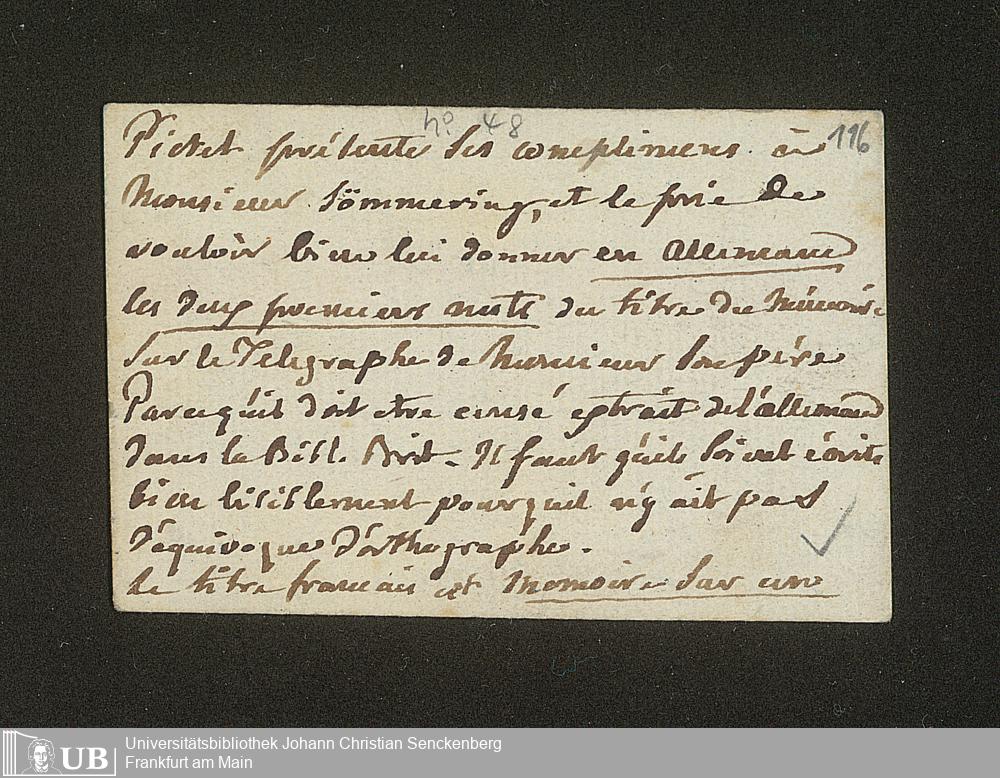 no 48
116
Pictet présente ses complimens à
Monsieur Sömmering, et le prie de
vouloir bien lui donner en allemand
les deux premiers mots du titre du Mémoire
sur le Telegraphe de Monsieur son père
Parcequ'il doit etre censé extrait de l'allemand
dans la Bibl. Brit. Il faut qu'ils soient écrits
bien lisiblement pour qu'il n'y ait pas
d'équivoque d'orthographe.
Le titre francais est Memoire sur un
UB
Universitätsbibliothek Johann Christian Senckenberg
Frankfurt am Main